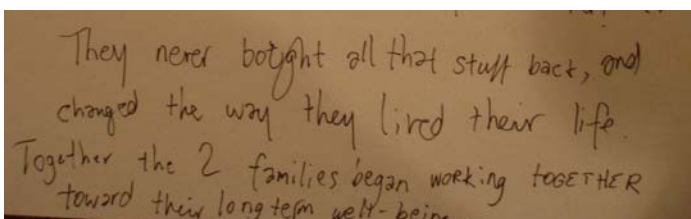 They never bought all that stuff back, and
changed the way they lived their life.
Together the 2 families began working TOGETHER
toward their long term well-being